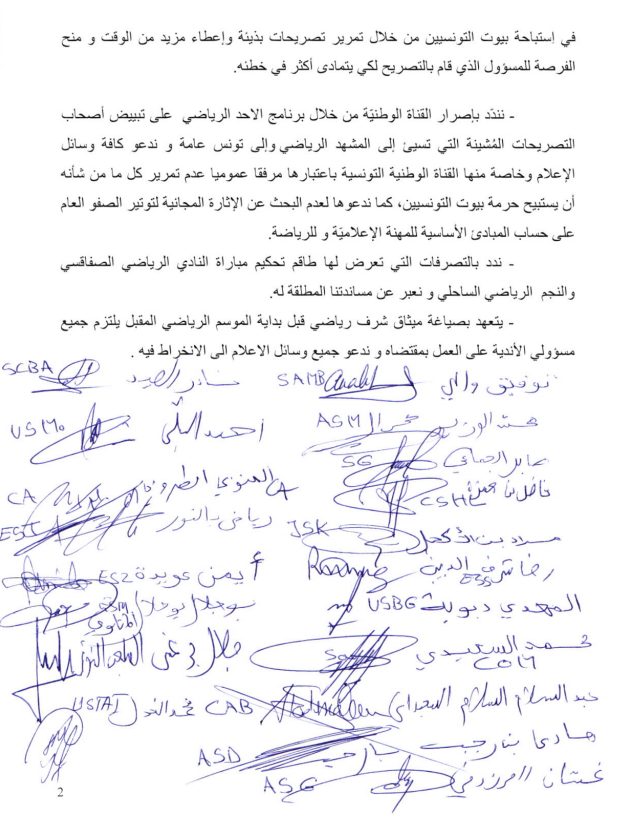 في إستباحة بيوت التونسيين من خلال تمرير تصريحات بذيئة وإعطاء مزيد من الوقت و منح
الفرصة للمسؤول الذي قام بالتصريح لكي يتمادى أكثر في خطئه.
- نندّد بإصرار القناة الوطنيّة من خلال برنامج الاحد الرياضي على تبييض أصحاب
التصريحات المُشينة التي تسيئ إلى المشهد الرياضي وإلى تونس عامة و ندعو كافة وسائل
الإعلام وخاصة منها القناة الوطنية التونسية باعتبارها مرفقا عموميا عدم تمرير كل ما من شأنه
أن يستبيح حرمة بيوت التونسيين، كما ندعوها لعدم البحث عن الإثارة المجانية لتوتير الصفو العام
على حساب المبادئ الأساسية للمهنة الإعلاميّة و للرياضة.
- ندد بالتصرفات التي تعرض لها طاقم تحكيم مباراة النادي الرياضي الصفاقسي
والنجم الرياضي الساحلي و نعبر عن مساندتنا المطلقة له.
- يتعهد بصياغة ميثاق شرف رياضي قبل بداية الموسم الرياضي المقبل يلتزم جميع
مسؤولي الأندية على العمل بمقتضاه و ندعو جميع وسائل الاعلام الى الانخراط فيه .
توفيق SAMB SCBA
ASM أحمد USMo
صابر SG
CSHL فاضل CA
JSK رياض بالنور EST
رضا شرف الدين ESS أيمن عويدة ESZ
المهدي USBG
محمد السعيدي COM جلال
عبد السلام السعيداني CAB USTAT
ASD
غسان المرزوقي ASG
2